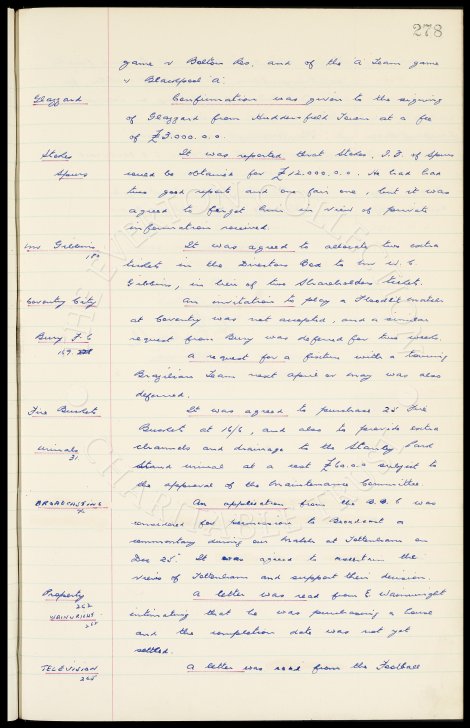 278
game v Bolton Res. and of the A Team game
v Blackpool A.
Glazzard
Confirmation was given to the signing
of Glazzard from Huddersfield Town at a fee
of £3.000.0.0.
Stokes
It was reported that Stokes, I.F. of Spurs
Spurs
could be obtained for £12.000.0.0. He had had
two good reports and one fair one, but it was
agreed to forget him in view of private
information received.
Mr Gibbins
It was agreed to allocate two extra
tickets in the Directors Box to Mr W. C.
Gibbins, in lieu of two Shareholders tickets.
Coventry City
An invitation to play a Floodlit match
at Coventry was not accepted, and a similar
Bury F.C
request from Bury was deferred for two weeks.
169
A request for a fixture with a touring
Brazilian Team next April or May was also
deferred.
Fire Buckets
It was agreed to purchase 25 Fire
Buckets at 16/6, and also to provide extra
Urinals
channels and drainage to the Stanley Park
31
Stand urinal at a cost £60.0.0 subject to
the approval of the Maintenance Committee.
BROADCASTING
An application from the B.B.C was
considered for permission to Broadcast a
commentary during our match at Tottenham on
Dec 25. It was agreed to ascertain the
views of Tottenham and support their decision.
Property
A letter was read from E. Wainwright
262
WAINWRIGHT
intimating that he was purchasing a house
and the completion date was not yet
settled.
TELEVISION
A letter was read from the Football
THE EVERTON COLLECTION
CHARITABLE TRUST